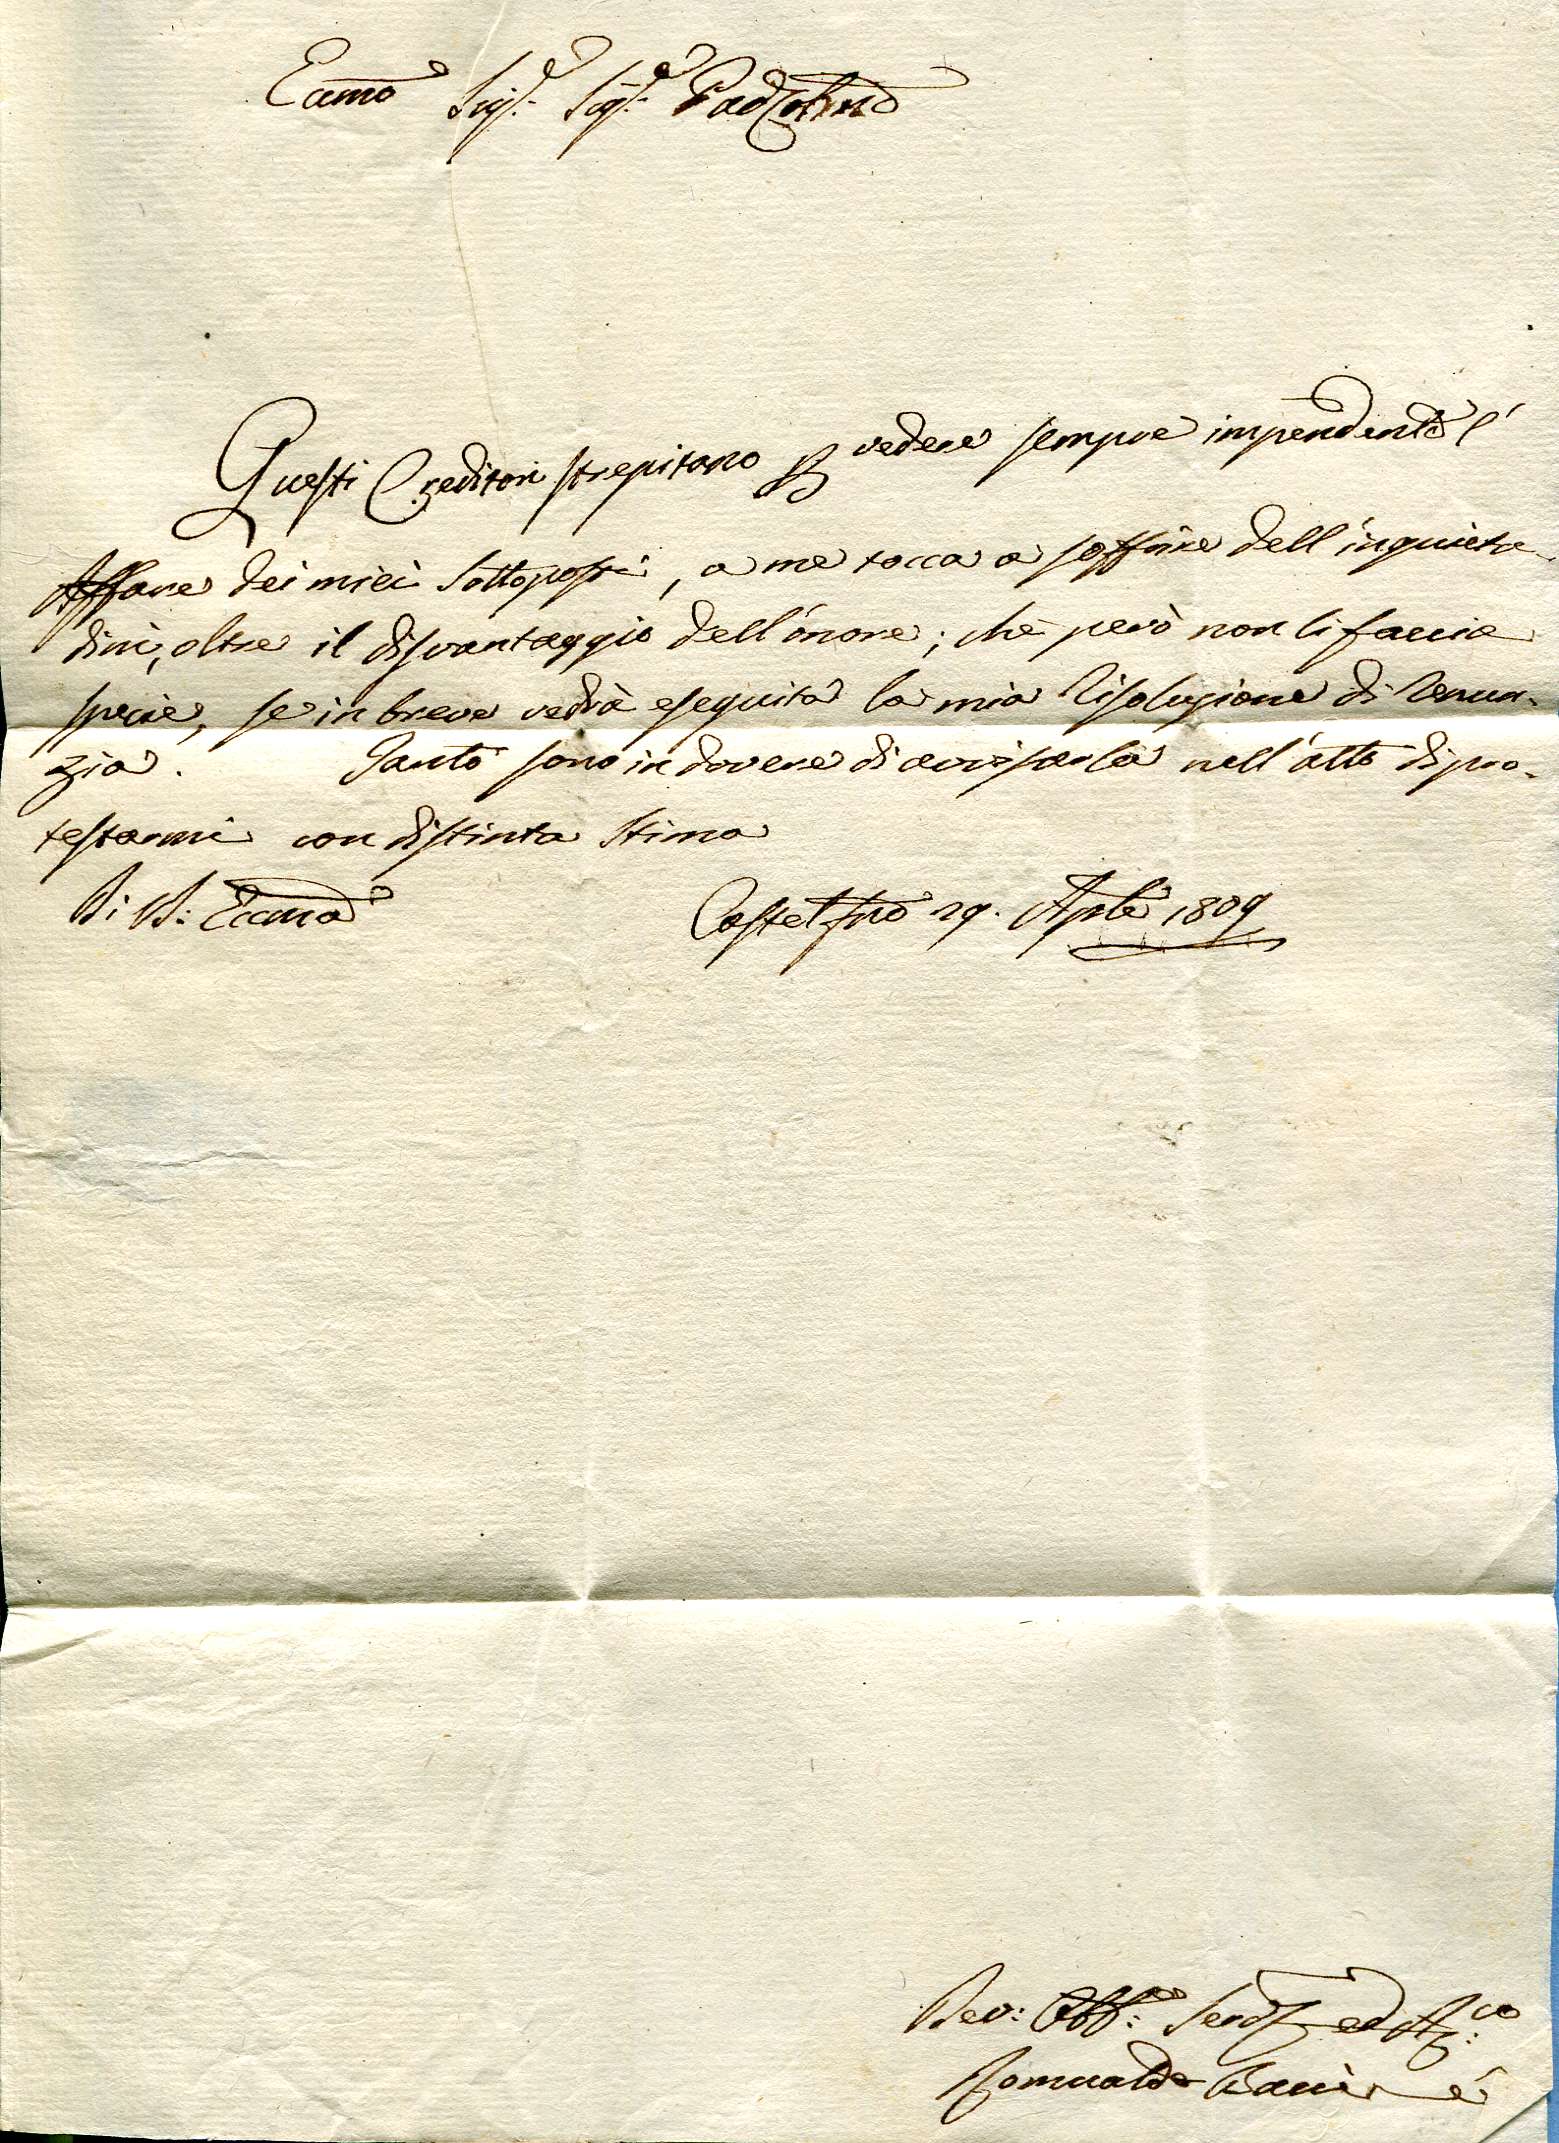 Eccmo Sig.e Sig.e Pad
Questi Creditori strepitano per vedere sempre impendente l'
Affare dei miei Sottoposti, a me tocca a soffrire dell'inquietu-
dini, oltre il disvantaggio dell'onore; che però non li faccia
specie, se in breve vedrà eseguita la mia risoluzione di renun-
zia. Tanto sono in dovere di avvisarla nell'atto di pro-
testarmi con distinta stima
Di V: Eccma
Castel 29. Aple 1809
Dev: Obb: Serv ed Am:co
Romualdo